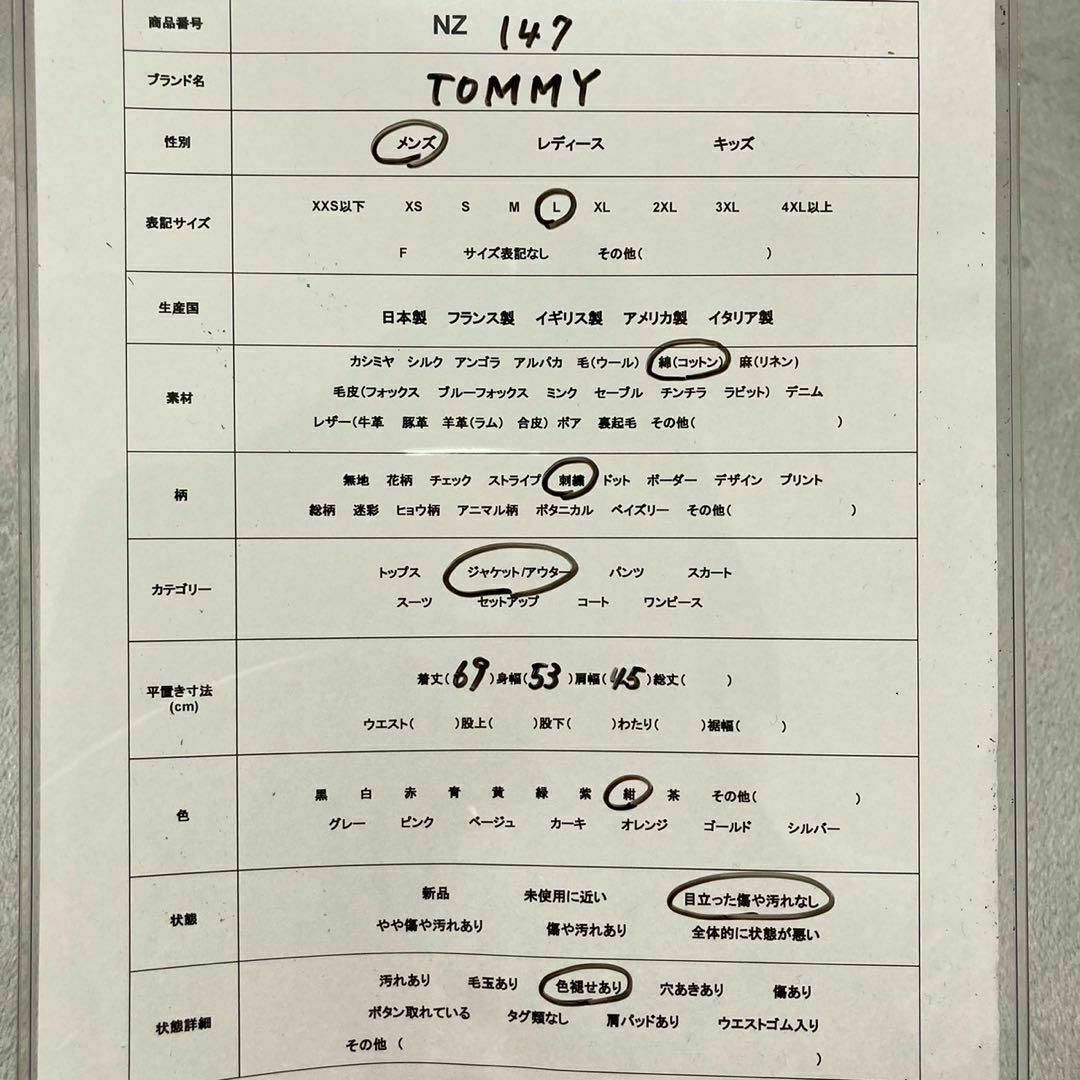 商品番号 NZ 147
ブランド名 TOMMY
性別 メンズ レディース キッズ
表記サイズ XXS以下 XS S M L XL 2XL 3XL 4XL以上
F サイズ表記なし その他( )
生産国 日本製 フランス製 イギリス製 アメリカ製 イタリア製
素材 カシミヤ シルク アンゴラ アルパカ 毛(ウール) 綿(コットン) 麻(リネン)
毛皮(フォックス ブルーフォックス ミンク セーブル チンチラ ラビット) デニム
レザー(牛革 豚革 羊革(ラム) 合皮) ボア 裏起毛 その他( )
柄 無地 花柄 チェック ストライプ 刺繍 ドット ボーダー デザイン プリント
総柄 迷彩 ヒョウ柄 アニマル柄 ボタニカル ペイズリー その他( )
カテゴリー トップス ジャケット/アウター パンツ スカート
スーツ セットアップ コート ワンピース
平置き寸法 (cm) 着丈(69)身幅(53)肩幅(45)総丈( )
ウエスト( )股上( )股下( )わたり( )裾幅( )
色 黒 白 赤 青 黄 緑 紫 紺 茶 その他( )
グレー ピンク ベージュ カーキ オレンジ ゴールド シルバー
状態 新品 未使用に近い 目立った傷や汚れなし
やや傷や汚れあり 傷や汚れあり 全体的に状態が悪い
状態詳細 汚れあり 毛玉あり 色褪せあり 穴あきあり 傷あり
ボタン取れている タグ類なし 肩パッドあり ウエストゴム入り
その他 ( )